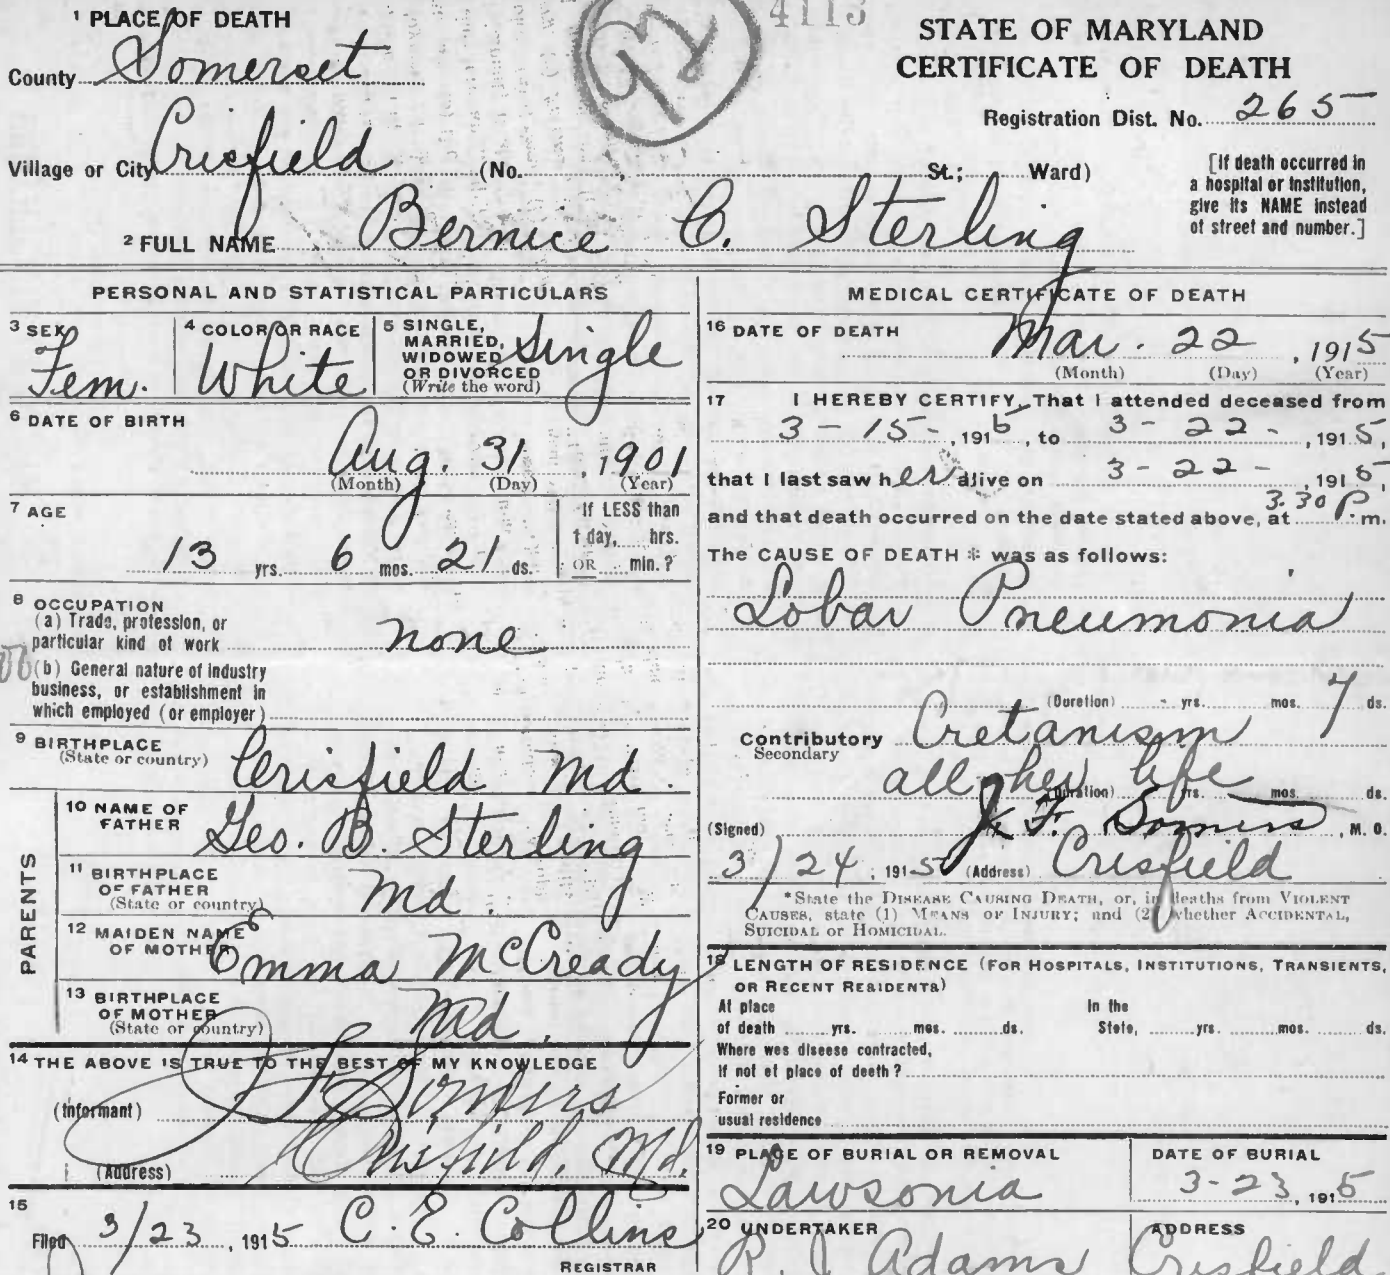 1 PLACE OF DEATH
County Somerset
Village or City Crisfield (No. , St.; Ward)
2 FULL NAME Bernice C. Sterling
92
4113
STATE OF MARYLAND
CERTIFICATE OF DEATH
Registration Dist. No. 265
[If death occurred in
a hospital or institution,
give its NAME instead
of street and number.]
PERSONAL AND STATISTICAL PARTICULARS
3 SEX Fem.
4 COLOR OR RACE White
5 SINGLE,
MARRIED,
WIDOWED
OR DIVORCED
(Write the word) Single
6 DATE OF BIRTH
Aug. 31, 1901
(Month) (Day) (Year)
7 AGE
13 yrs. 6 mos. 21 ds.
If LESS than
1 day, hrs.
OR min.?
8 OCCUPATION
(a) Trade, profession, or
particular kind of work none
(b) General nature of industry
business, or establishment in
which employed (or employer)
9 BIRTHPLACE
(State or country) Crisfield Md.
PARENTS
10 NAME OF
FATHER Geo. B. Sterling
11 BIRTHPLACE
OF FATHER
(State or country) Md.
12 MAIDEN NAME
OF MOTHER Emma McCready
13 BIRTHPLACE
OF MOTHER
(State or country) Md.
14 THE ABOVE IS TRUE TO THE BEST OF MY KNOWLEDGE
(Informant) Somers
(Address) Crisfield, Md.
15
Filed 3/23, 1915 C. E. Collins
REGISTRAR
MEDICAL CERTIFICATE OF DEATH
16 DATE OF DEATH
Mar. 22, 1915
(Month) (Day) (Year)
17 I HEREBY CERTIFY, That I attended deceased from
3-15-, 1915, to 3-22-, 1915,
that I last saw her alive on 3-22-, 1915,
and that death occurred on the date stated above, at 3.30 P. m.
The CAUSE OF DEATH * was as follows:
Lobar Pneumonia
(Duration) - yrs. mos. 7 ds.
Contributory Cretanism
Secondary
all her life
(Duration) yrs. mos. ds.
(Signed) J. F. Somers, M. D.
3/24, 1915 (Address) Crisfield
*State the DISEASE CAUSING DEATH, or, in deaths from VIOLENT
CAUSES, state (1) MEANS OF INJURY; and (2) whether ACCIDENTAL,
SUICIDAL or HOMICIDAL.
18 LENGTH OF RESIDENCE (FOR HOSPITALS, INSTITUTIONS, TRANSIENTS,
OR RECENT RESIDENTS)
At place In the
of death yrs. mos. ds. State, yrs. mos. ds.
Where was disease contracted,
If not at place of death?
Former or
usual residence
19 PLACE OF BURIAL OR REMOVAL
Lawsonia
DATE OF BURIAL
3-23, 1915
20 UNDERTAKER
R. J. Adams
ADDRESS
Crisfield